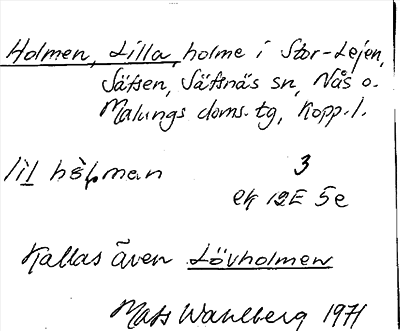 Holmen, Lilla, holme i Stor-Lejen,
Säfsen, Säfsnäs sn, Nås o.
Malungs doms.tg, Kopp.l.
3
ek 12E 5e
Kallas även Lövholmen
Mats Wahlberg 1971